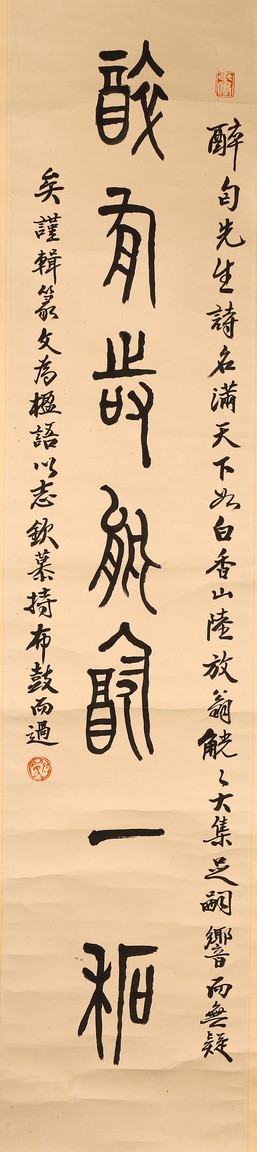 醉先生詩名滿天下如白香山陸放翁觥〻大集足嗣響而無疑
有能一
矣謹輯篆文為楹語以志欽慕持布鼓而過